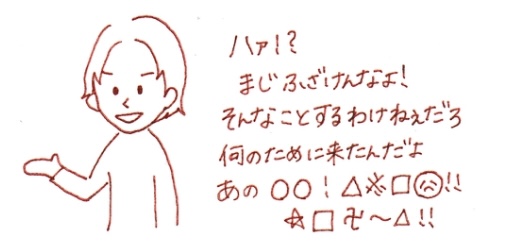 ハァ!?
まじふざけんなよ!
そんなことするわけねぇだろ
何のために来たんだよ
あの ○○! △※□☹!!
☆□卍〜△!!